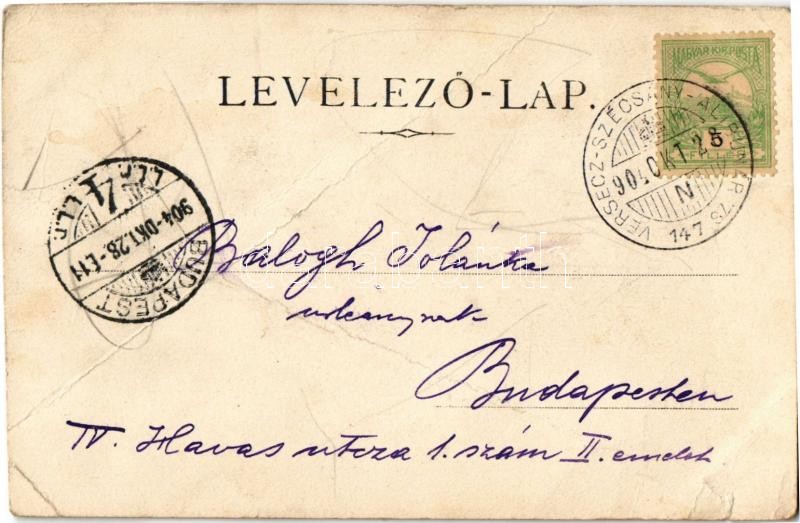 LEVELEZŐ-LAP.
MAGYAR KIR. POSTA
5
VERSECZ-SZÉCSÁNY-
904 OKT 28
N
147 SZ
904 OKT. 28 - É.11
BUDAPEST
Balogh Jolánka
urleánynak
Budapesten
IV. Havas utcza 1. szám II. emelet